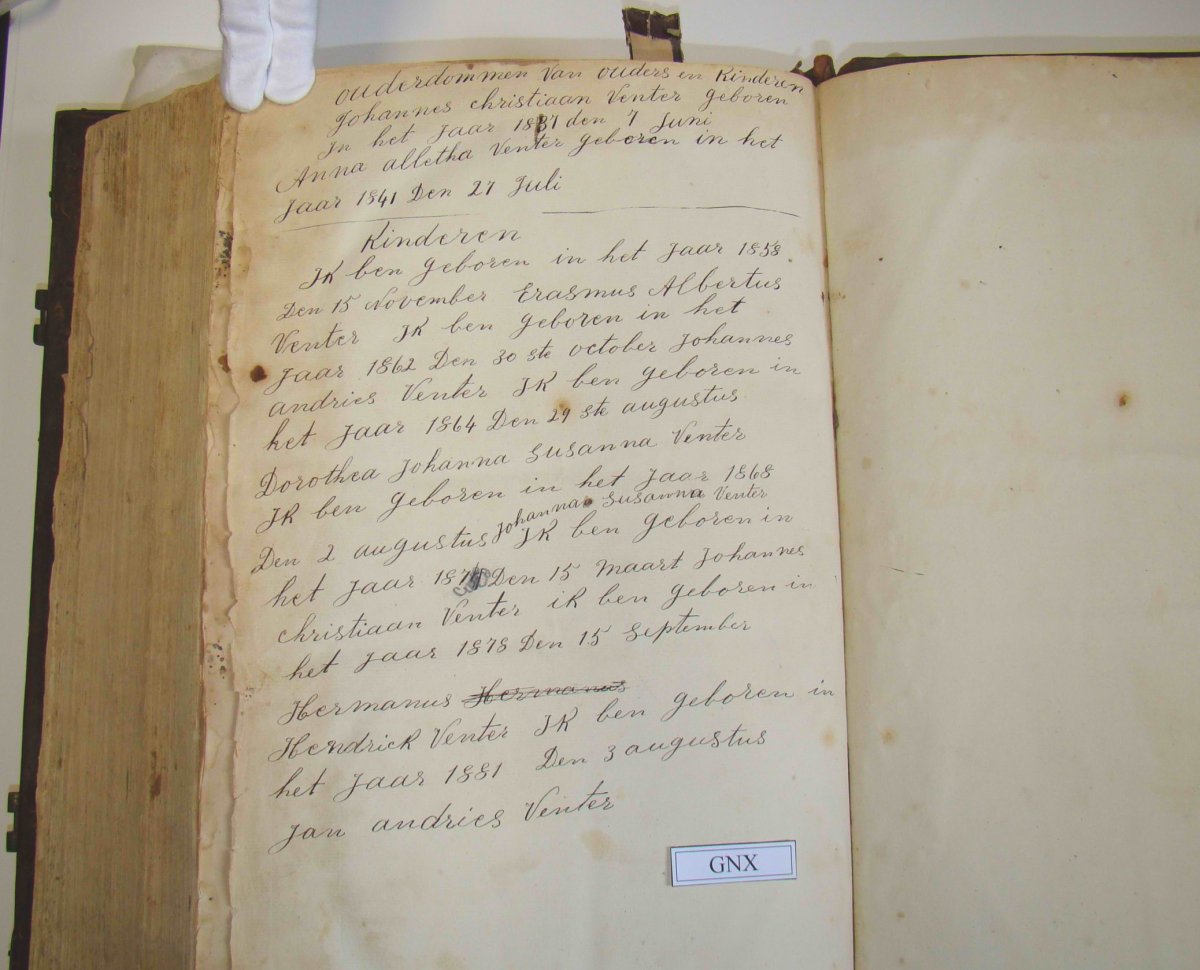 ouderdommen Van ouders en Kinderen
Johannes christiaan Venter geboren
In het Jaar 1837 den 7 Juni
Anna alletha Venter geboren in het
Jaar 1841 Den 27 Juli
Kinderen
IK ben geboren in het Jaar 1858
Den 15 November Erasmus Albertus
Venter IK ben geboren in het
Jaar 1862 Den 30 ste october Johannes
andries Venter IK ben geboren in
het Jaar 1864 Den 29 ste augustus
Dorothea Johanna Susanna Venter
IK ben geboren in het Jaar 1868
Johanna Susanna Venter
Den 2 augustus IK ben geboren in
het Jaar Den 15 maart Johannes
christiaan Venter ik ben geboren in
het Jaar 1878 Den 15 September
Hermanus Hermanus
Hendrick Venter IK ben geboren in
het Jaar 1881 Den 3 augustus
Jan andries Venter
GNX